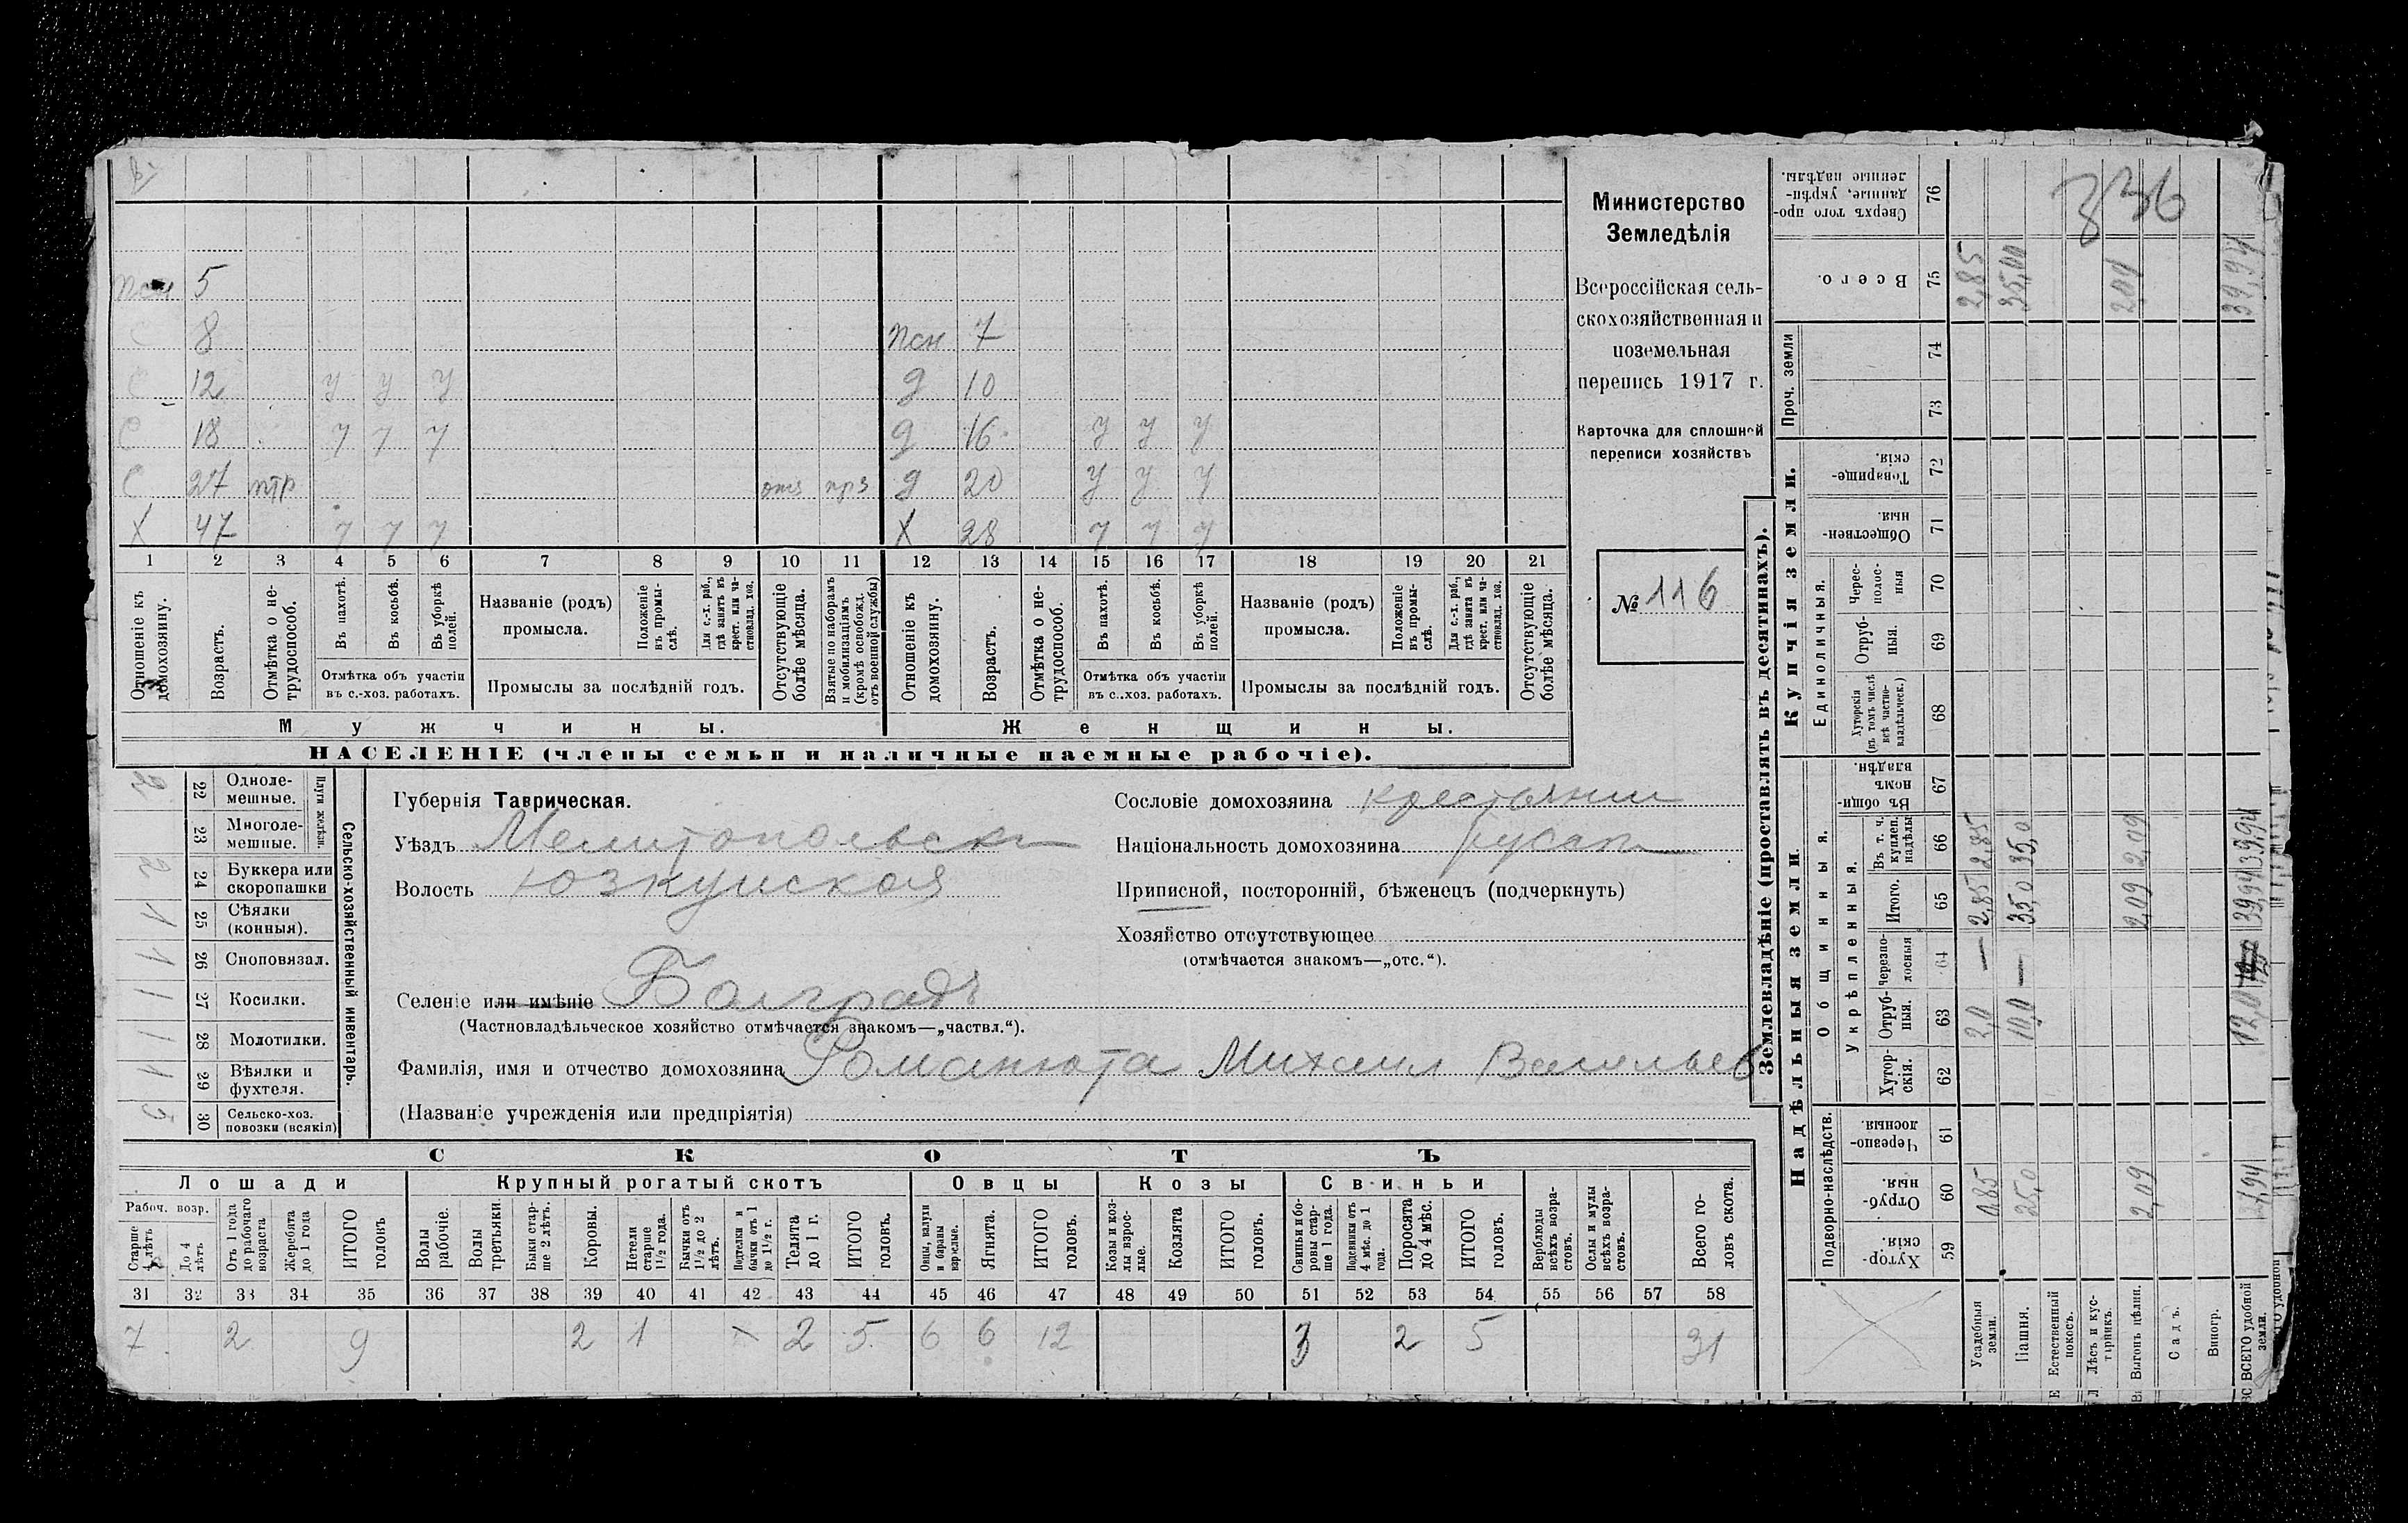 336
Министерство
Земледѣлія
Всероссійская сель-
скохозяйственная и
поземельная
перепись 1917 г.
Карточка для сплошной
переписи хозяйствъ
№ 116
псн 5
С 8
С 12 У У У
С 18 У У У
С 27 отс
Х 47 У У У
псн 7
д 10
д 16 У У У
д 20 У У У
Х 28 У У У
1 2 3 4 5 6 7 8 9 10 11 12 13 14 15 16 17 18 19 20 21
Отношеніе къ домохозяину.
Возрастъ.
Отмѣтка о не-трудоспособ.
Въ пахотѣ.
Въ косьбѣ.
Въ уборкѣ полей.
Отмѣтка объ участіи
въ с.-хоз. работахъ.
Названіе (родъ)
промысла.
Положеніе въ промы-слѣ.
Для с.-х. раб., гдѣ занятъ въ крест. или ча-стновлад. хоз.
Промыслы за послѣдній годъ.
Отсутствующіе болѣе мѣсяца.
Взятые по наборамъ и мобилизаціямъ (кромѣ освобожд. отъ военной службы)
Отношеніе къ домохозяину.
Возрастъ.
Отмѣтка о не-трудоспособ.
Въ пахотѣ.
Въ косьбѣ.
Въ уборкѣ полей.
Отмѣтка объ участіи
въ с.-хоз. работахъ.
Названіе (родъ)
промысла.
Положеніе въ промы-слѣ.
Для с.-х. раб., гдѣ занята въ крест. или ча-стновлад. хоз.
Промыслы за послѣдній годъ.
Отсутствующіе болѣе мѣсяца.
Мужчины.
Женщины.
НАСЕЛЕНІЕ (члены семьи и наличные наемные рабочіе).
Сельско-хозяйственный инвентарь.
Плуги желѣзн.
22 Одноле-мешные.
23 Многоле-мешные.
2 24 Буккера или скоропашки
1 25 Сѣялки (конныя).
1 26 Сноповязал.
1 27 Косилки.
1 28 Молотилки.
1 29 Вѣялки и фухтеля.
30 Сельско-хоз. повозки (всякія)
Губернія Таврическая.
Уѣздъ Мелитопольск
Волость Юзкуйская
Селеніе или имѣніе Болградъ
(Частновладѣльческое хозяйство отмѣчается знакомъ—„частвл.“).
Фамилія, имя и отчество домохозяина Романюта Михаил Васильев
(Названіе учрежденія или предпріятія)
Сословіе домохозяина крестьянин
Національность домохозяина русск
Приписной, посторонній, бѣженецъ (подчеркнуть)
Хозяйство отсутствующее
(отмѣчается знакомъ—„отс.“).
СКОТЪ
Лошади
Крупный рогатый скотъ
Овцы
Козы
Свиньи
Рабоч. возр.
Старше 4 лѣтъ
До 4 лѣтъ
Отъ 1 года до рабочаго возраста
Жеребята до 1 года
ИТОГО головъ
Волы рабочіе.
Волы третьяки.
Быки стар-ше 2 лѣтъ.
Коровы.
Нетели старше 1½ года.
Бычки отъ 1½ до 2 лѣтъ.
Подтелки и бычки отъ 1 до 1½ г.
Телята до 1 г.
ИТОГО головъ.
Овцы, валухи и бараны взрослые.
Ягнята.
ИТОГО головъ.
Козы и коз-лы взрос-лые.
Козлята
ИТОГО головъ.
Свиньи и бо-ровы стар-ше 1 года.
Подсвинки отъ 4 мѣс. до 1 года.
Поросята до 4 мѣс.
ИТОГО головъ.
Верблюды всѣхъ возра-стовъ.
Ослы и мулы всѣхъ возра-стовъ.
Всего го-ловъ скота.
31 32 33 34 35 36 37 38 39 40 41 42 43 44 45 46 47 48 49 50 51 52 53 54 55 56 57 58
7 2 9 2 1 2 5 6 6 12 3 2 5 31
Землевладѣніе (проставлять въ десятинахъ).
Надѣльныя земли
Купчія земли.
Проч. земли
Подворно-наслѣдств.
Общинныя.
Укрѣпленныя.
Единоличныя.
Хутор-скія. 59
Отруб-ныя. 60
Черезпо-лосныя. 61
Хутор-скія. 62
Отруб-ныя. 63
черезпо-лосныя 64
Итого. 65
Въ т. ч. куплен. надѣлы 66
Въ общи-номъ владѣн. 67
Хуторскія (въ томъ числѣ всѣ частно-владѣльческ.) 68
Отруб-ныя. 69
Черес-полос-ныя 70
Обществен-ныя. 71
Товарище-скія. 72
73
74
Всего. 75
Сверхъ того про-данные, укрѣп-ленные надѣлы. 76
Усадебныя земли. 0,85 2,0 — 2,85 2,85 2,85
Пашня. 25,0 10,0 — 35,0 35,0 35,00
Естественный покосъ.
Лѣсъ и кус-тарникъ.
Выгонъ цѣлин. 2,09 2,09 2,09
Садъ.
Виногр.
ВСЕГО удобной земли. 12,0 39,94 39,94 39,94